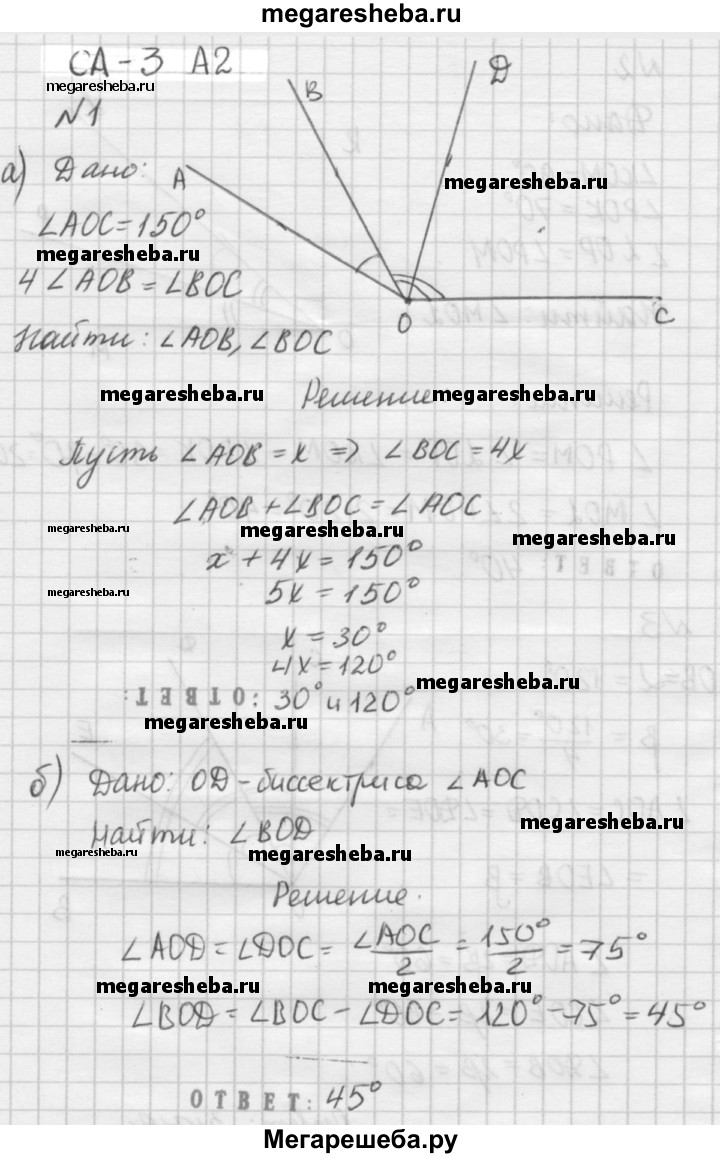 megaresheba.ru
СА-3 А2
megaresheba.ru
№1
B
D
а) Дано:
A
megaresheba.ru
∠AOC = 150°
megaresheba.ru
4∠AOB = ∠BOC
O
C
Найти: ∠AOB, ∠BOC
megaresheba.ru
Решение
megaresheba.ru
Пусть ∠AOB = x => ∠BOC = 4x
∠AOB + ∠BOC = ∠AOC
megaresheba.ru
megaresheba.ru
megaresheba.ru
x + 4x = 150°
5x = 150°
megaresheba.ru
x = 30°
4x = 120°
megaresheba.ru
ОТВЕТ: 30° и 120°
megaresheba.ru
б) Дано: OD - биссектриса ∠AOC
Найти: ∠BOD
megaresheba.ru
megaresheba.ru
megaresheba.ru
Решение.
∠AOD = ∠DOC = ∠AOC/2 = 150°/2 = 75°
megaresheba.ru
megaresheba.ru
∠BOD = ∠BOC - ∠DOC = 120° - 75° = 45°
ОТВЕТ: 45°
Мегарешеба.ру